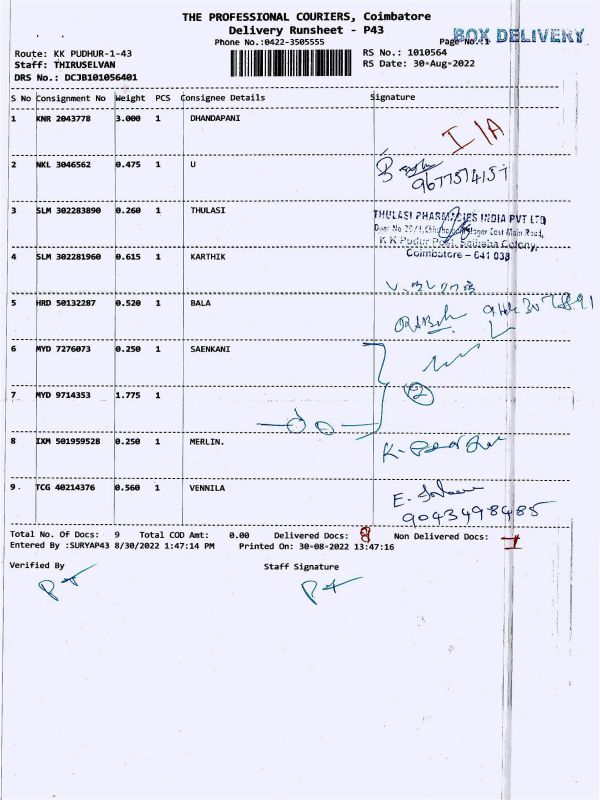 THE PROFESSIONAL COURIERS, Coimbatore
Delivery Runsheet - P43
BOX DELIVERY
Phone No.:0422-3505555
Page No.:1
Route: KK PUDHUR-1-43
RS No.: 1010564
Staff: THIRUSELVAN
RS Date: 30-Aug-2022
DRS No.: DCJB101056401
S No Consignment No Weight PCS Consignee Details Signature
1 KNR 2043778 3.000 1 DHANDAPANI
I/A
2 NKL 3046562 0.475 1 U
9677574157
3 SLM 302283890 0.260 1 THULASI
THULASI PHARMACIES INDIA PVT LTD
East Main Road,
K K Pudur Post, Saibaba Colony,
Coimbatore - 641 038
4 SLM 302281960 0.615 1 KARTHIK
5 HRD 50132287 0.520 1 BALA
6 MYD 7276073 0.250 1 SAENKANI
7 MYD 9714353 1.775 1
2
8 IXM 501959528 0.250 1 MERLIN.
9. TCG 40214376 0.560 1 VENNILA
9043498485
Total No. Of Docs: 9 Total COD Amt: 0.00 Delivered Docs: 8 Non Delivered Docs: 1
Entered By :SURYAP43 8/30/2022 1:47:14 PM Printed On: 30-08-2022 13:47:16
Verified By Staff Signature